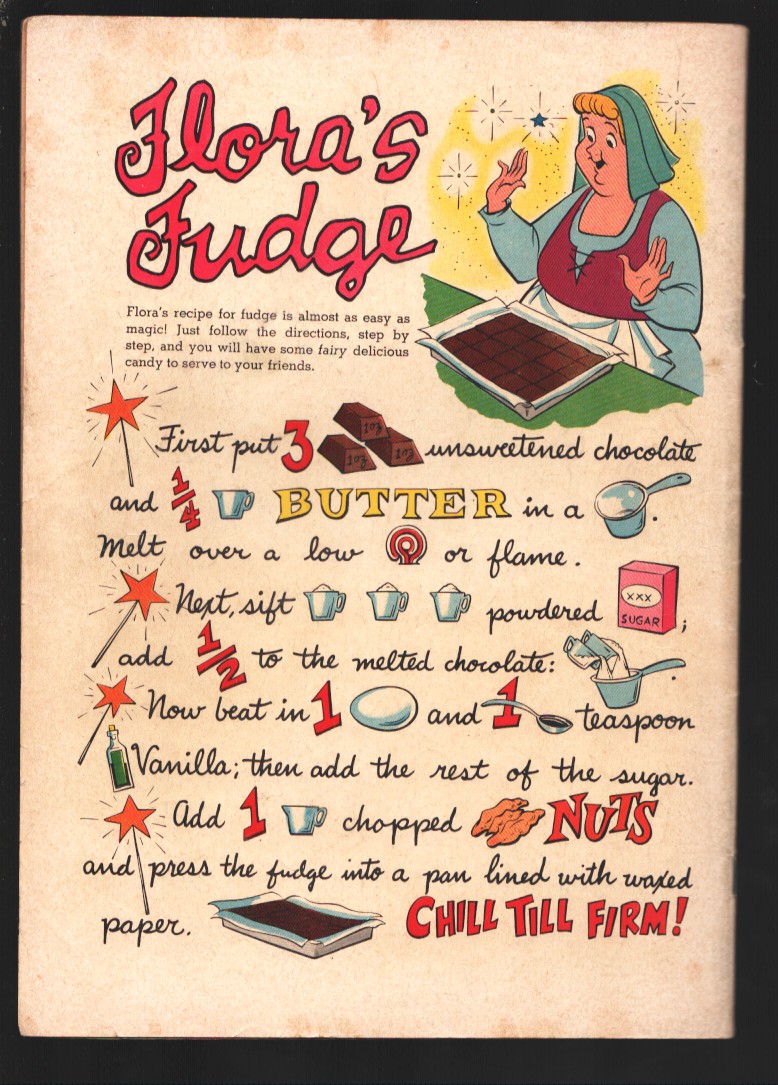 Flora's
Fudge
Flora's recipe for fudge is almost as easy as
magic! Just follow the directions, step by
step, and you will have some fairy delicious
candy to serve to your friends.
First put 3 1oz 1oz 1oz unsweetened chocolate
and 1/4 BUTTER in a .
Melt over a low or flame.
Next, sift powdered XXX SUGAR ;
add 1/2 to the melted chocolate: .
Now beat in 1 and 1 teaspoon
Vanilla; then add the rest of the sugar.
Add 1 chopped NUTS
and press the fudge into a pan lined with waxed
paper. CHILL TILL FIRM!